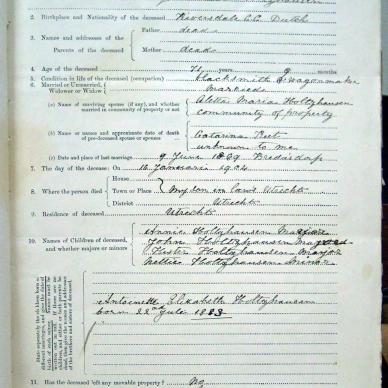 2. Birthplace and Nationality of the deceased Riversdale C.C. Dutch
3. Names and addresses of the Parents of the deceased
Father dead
Mother dead
4. Age of the deceased 71 years 9 months
5. Condition in life of the deceased (occupation) blacksmith & wagonmaker
6. Married or Unmarried, Widower or Widow Married
(a) Name of surviving spouse (if any), and whether married in community of property or not
Aletta Maria Holtzhausen
community of property
(b) Name or names and approximate date of death of pre-deceased spouse or spouses
Catarina
unknown to me
(c) Date and place of last marriage 9 June 1889 Bredasdorp
7. The day of the decease: On 16 1924
8. Where the person died
House
Town or Place my son in laws Utrecht
District Utrecht
9. Residence of deceased Utrecht
10. Names of Children of deceased, and whether majors or minors
Annie Holtzhausen
John Holtzhausen
Holtzhausen Major
Nellie Holtzhausen Minor
Antoinette Elizabeth Holtzhausen
born 22nd July 1883
11. Has the deceased left any movable property? No